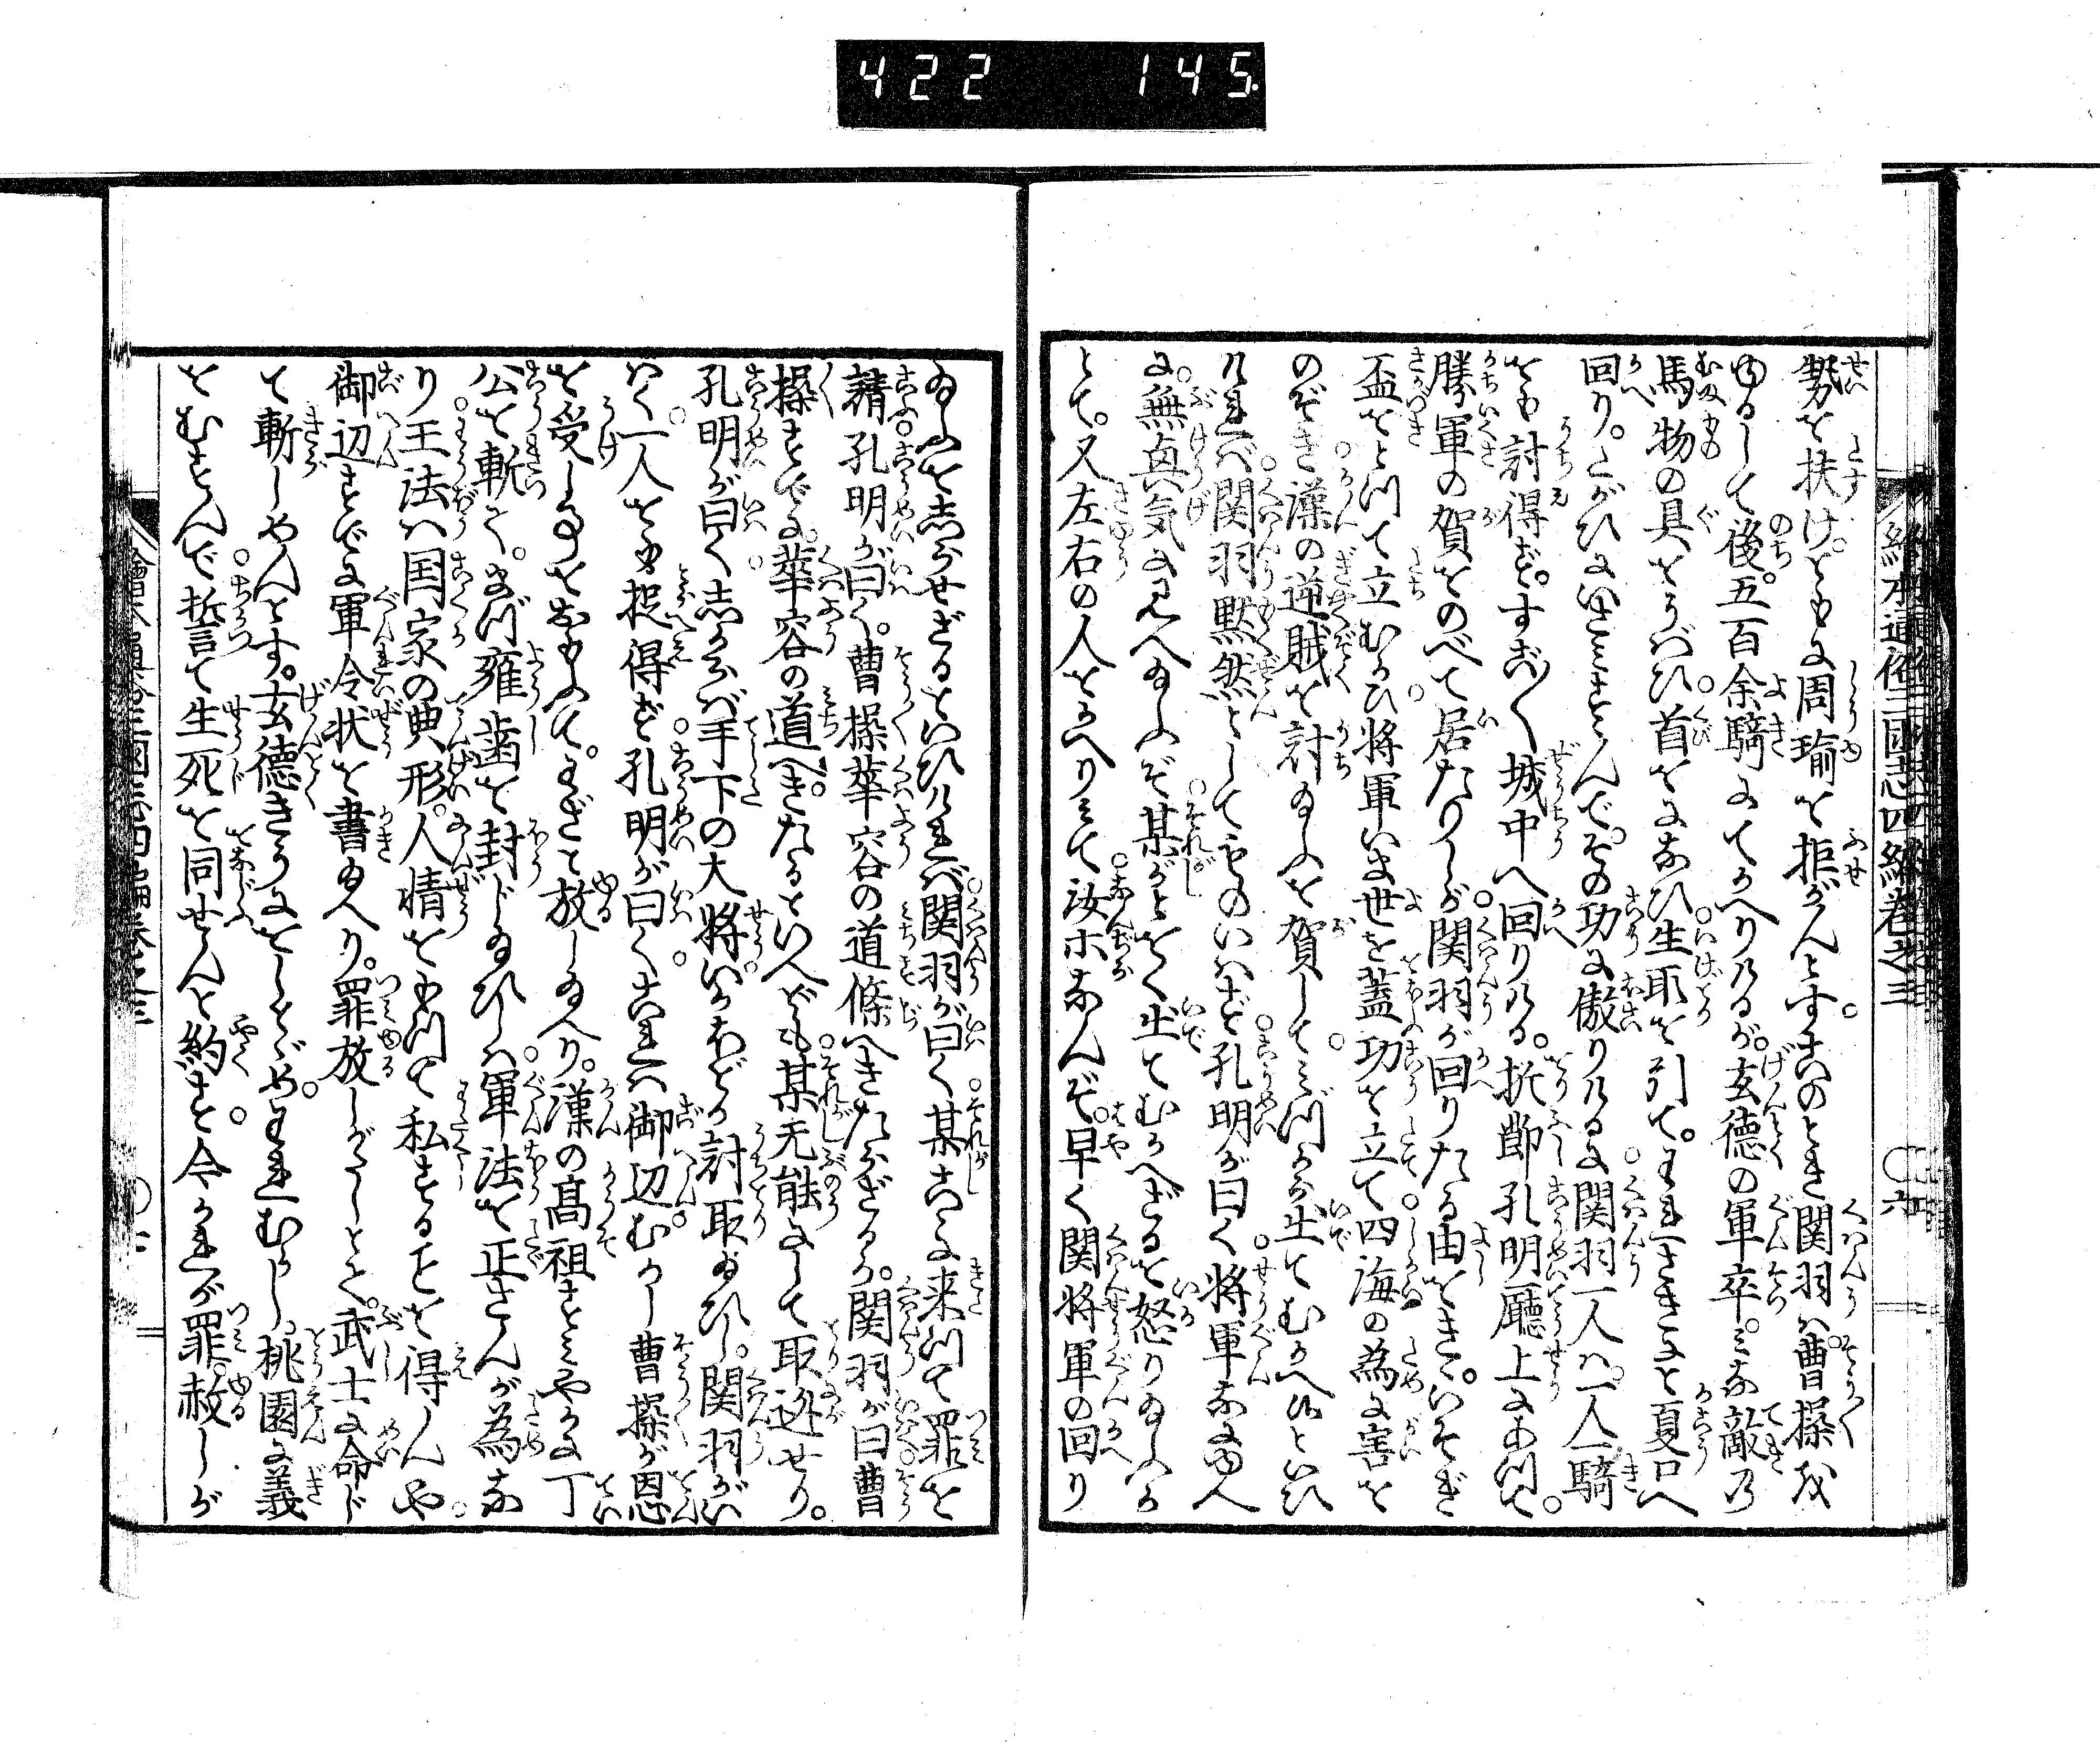 422 145
絵本通俗三國志四編巻之三 〇六
勢を扶け。ともに周瑜を拒がんとす。このとき関羽は。曹操を
ゆるして後。五百余騎にてかへりけるが。玄徳の軍卒。みな敵の
馬物の具をうばひ。首をになひ生取を引て。われさきにと夏口へ
回り。たがひにいさみすすんで。その功に傲りけるに関羽一人は。一人一騎
をも討得ず。すごすご城中へ回りける。折節孔明廳上にあつて。
勝軍の賀をのべて居たりしが。関羽が回りたる由をきき。いそぎ
盃をとつて立むかひ。将軍いま世を蓋功を立て。四海の為に害を
のぞき。漢の逆賊を討給ふを賀して。みづから出てむかへ候といひ
ければ。関羽黙然としてものいはず。孔明が曰く。将軍なにゆへ
に。無興気に見へ給ふぞ。某がとをく出てむかへざるを怒り給ふか
とて。又左右の人をかへりみて。汝ホなんぞ。早く関将軍の回り
給ふを志らせざるといひければ。関羽が曰く。某ここに来つて罪を
請。孔明が曰く。曹操華容の道條へきたらざるか。関羽が曰曹
操すでに。華容の道へきたるといへども。某无能にして取逃せり。
孔明が曰く。志からば手下の大将。いかほどか討取給ひし。関羽がい
はく。一人をも捉得ず。孔明が曰く。これは御辺。むかし曹操が恩
を受しことをおもふて。わざと放し給へり。漢の高祖すみやかに丁
公を斬て。まづ雍歯を封じ給ひしは。軍法を正さんが為な
り。王法は国家の典形。人情をもつて私することを得んや。
御辺すでに軍令状を書給へり。罪放しがたしとて。武士に命じ
て斬しめんとす。玄徳きうにをしとどめ。われむかし。桃園に義
をむすんで。誓て生死を同せんと約す。今かれが罪。赦しが
繪本通俗三國志四編巻之三